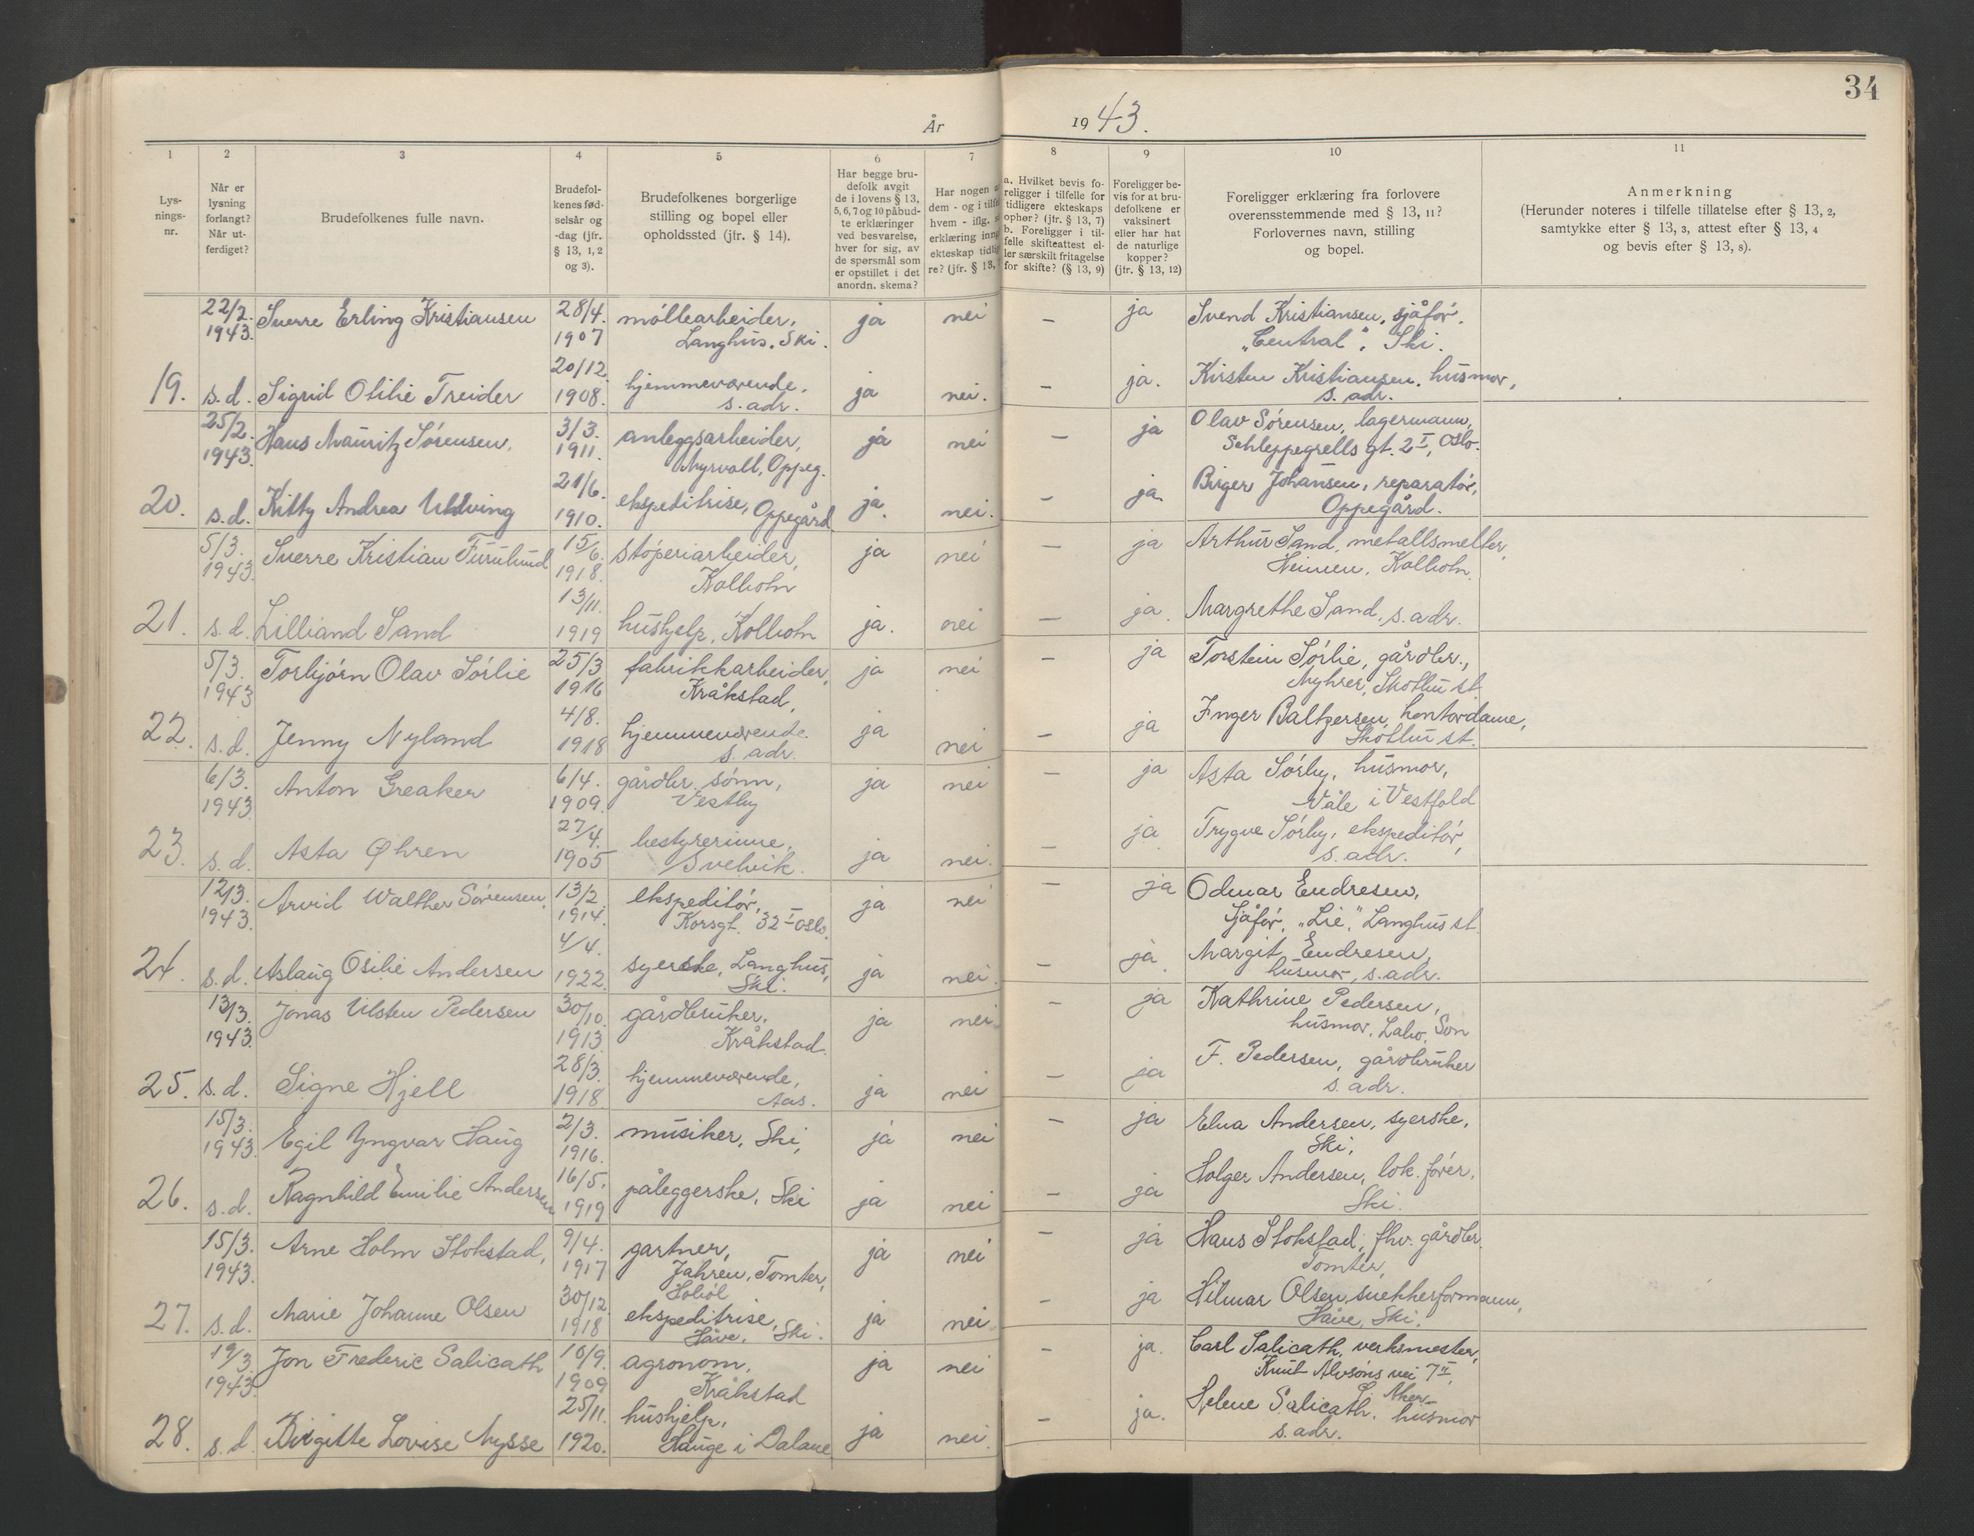 34
År 1943.
1 2 3 4 5 6 7 8 9 10 11
Lys-
nings-
nr.
Når er
lysning
forlangt?
Når ut-
ferdiget?
Brudefolkenes fulle navn.
Brudefol-
kenes fød-
selsår og
-dag (jfr.
§ 13, 1, 2
og 3).
Brudefolkenes borgerlige
stilling og bopel eller
opholdssted (jfr. § 14).
Har begge bru-
defolk avgit
de i lovens § 13,
5, 6, 7 og 10 påbud-
te erklæringer
ved besvarelse,
hver for sig, av
de spørsmål som
er opstillet i det
anordn. skema?
Har nogen a
dem - og i tilfel
hvem - iflg.
erklæring inng
ekteskap tidlig
re? (jfr. § 13,
a. Hvilket bevis fo-
religger i tilfelle for
tidligere ekteskaps
ophør? (jfr. § 13, 7)
b. Foreligger i til-
felle skifteattest el-
ler særskilt fritagelse
for skifte? (§ 13, 9)
Foreligger be-
vis for at bru-
defolkene er
vaksinert
eller har hat
de naturlige
kopper?
(jfr. § 13, 12)
Foreligger erklæring fra forlovere
overensstemmende med § 13, 11?
Forlovernes navn, stilling
og bopel.
Anmerkning
(Herunder noteres i tilfelle tillatelse efter § 13, 2,
samtykke efter § 13, 3, attest efter § 13, 4
og bevis efter § 13, 8).
22/2. 1943. Sverre Erling Kristiansen 28/4. 1907 møllearbeider, Langhus, Ski. ja nei - ja Svend Kristiansen, sjåfør, „Central", Ski.
19. s.d. Sigrid Otilie Treider 20/12. 1908. hjemmeværende, s. adr. ja nei. - ja. Kirsten Kristiansen, husmor, s. adr.
25/2. 1943. Hans Mauritz Sørensen, 3/3. 1911. anleggsarbeider, Myrvoll, Oppeg. ja nei - ja Olav Sørensen, lagermann, Schleppegrells gt. 2 I, Oslo.
20. s.d. Kitty Andrea Uldving 21/6. 1910. ekspeditrise, Oppegård ja. nei. - ja. Birger Johansen, reparatør, Oppegård.
5/3. 1943. Sverre Kristian Furulund 15/6. 1918. støperiarbeider, Kolbotn ja nei - ja Arthur Sand, metallsmelter, Heimen, Kolbotn.
21. s.d. Lilliand Sand 13/11. 1919 hushjelp, Kolbotn ja. nei - ja. Margrethe Sand, s. adr.
5/3. 1943 Torbjørn Olav Sørlie 25/3 1916 fabrikkarbeider, Kråkstad, ja nei - ja Torstein Sørlie, gårdbr., Myhrer, Skotbu st.
22. s.d. Jenny Nyland 4/8. 1918 hjemmeværende s. adr. ja nei - ja Inger Baltzersen, kontordame, Skotbu st.
6/3. 1943. Anton Greaker 6/4. 1909. gårdbr. sønn, Vestby ja nei - ja Asta Sørby, husmor, Våle i Vestfold
23. s.d. Asta Øhren 27/4. 1905 bestyrerinne, Svelvik. ja nei. - ja Trygve Sørby, ekspeditør, s. adr.
12/3. 1943. Arvid Walther Sørensen, 13/2. 1914. ekspeditør, Korsgt. 32 I Oslo. ja nei - ja Odmar Endresen, Sjåfør, „Lie", Langhus st.
24. s.d. Aslaug Osilie Andersen 4/4. 1922. syerske, Langhus, Ski. ja nei. - ja Margit Endresen, husmor, s. adr.
13/3. 1943. Jonas Ulsten Pedersen 30/10. 1913. gårdbruker, Kråkstad. ja nei - ja Kathrine Pedersen, husmor, Labo, Son
25. s.d. Signe Hjell 28/3. 1918. hjemmeværende, Aas. ja nei - ja F. Pedersen, gårdbruker s. adr.
15/3. 1943. Egil Yngvar Haug 2/3. 1916. musiker, Ski, ja nei - ja Elna Andersen, syerske, Ski,
26. s.d. Ragnhild Emilie Andersen 16/5. 1919 påleggerske, Ski ja nei - ja Holger Andersen, lok. fører, Ski.
15/3. 1943. Arne Holm Stokstad, 9/4. 1917 gartner, Jahren, Tomter, Hobøl ja nei - ja Hans Stokstad, fhv. gårdbr. Tomter,
27. s.d. Marie Johanne Olsen 30/12. 1918 ekspeditrise, Håve, Ski. ja nei - ja Hilmar Olsen, snekkerformann, Håve, Ski.
19/3. 1943. Jon Frederic Salicath 16/9. 1909 agronom, Kråkstad ja nei - ja. Carl Salicath, verksmester, Knut Alvsøns vei 7 II, Aker
28. s.d. Birgitte Lovise Mysse 25/11. 1920. hushjelp, Hauge i Dalane ja nei. - ja. Helene Salicath, husmor s. adr.